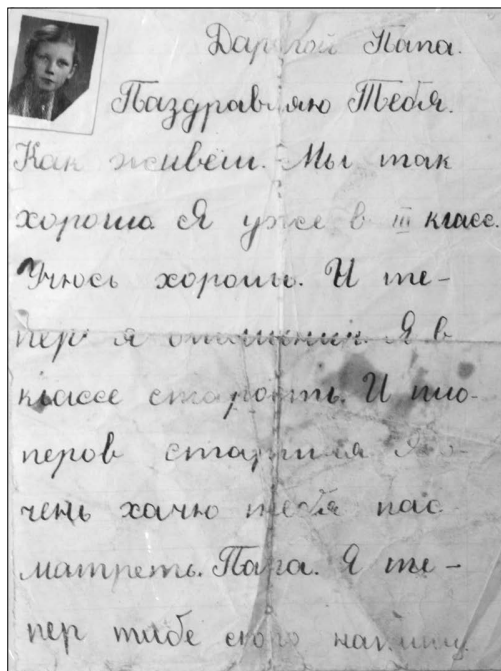 Дарагой Папа.
Паздравляю Тебя.
Как живёш. Мы так
хорошо Я уже в III класс.
Учюсь хорошы. И те-
пер я отличник. Я в
классе старость. И пио-
неров старшия Я о-
чень хачю тебя пас
матреть. Папа. Я те-
пер тибе скоро напишу